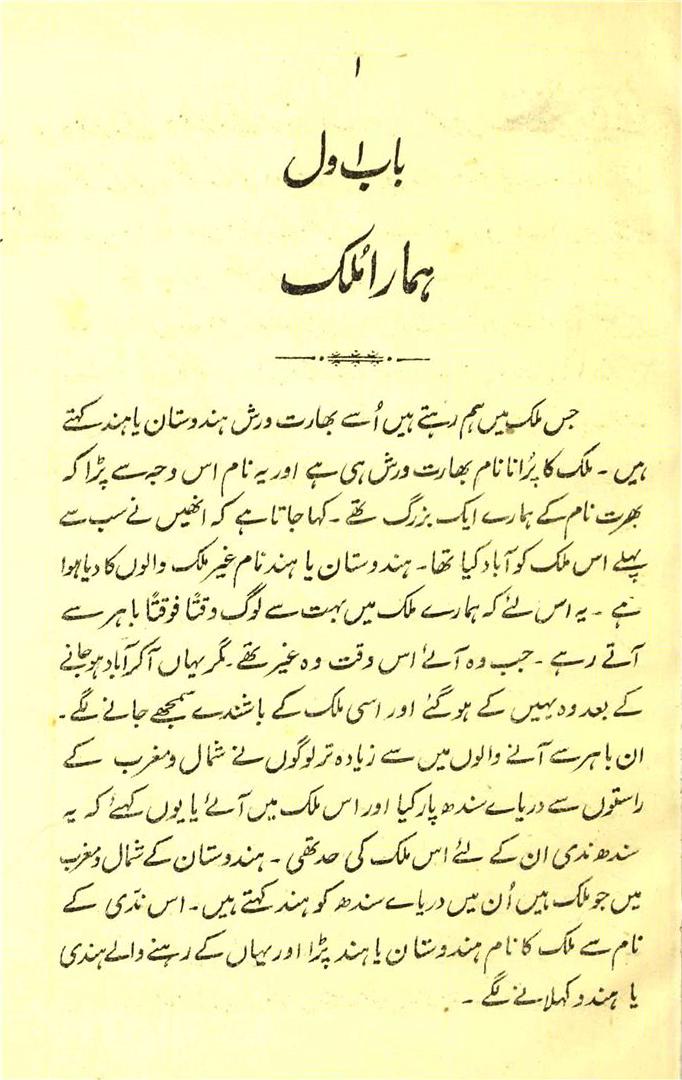 ۱
باب اول
ہمارا مُلک
جس ملک میں ہم رہتے ہیں اُسے بھارت ورش ہندوستان یا ہند کہتے
ہیں ۔ ملک کا پُرانا نام بھارت ورش ہی ہے اور یہ نام اس وجہ سے پڑا کہ
بھرت نام کے ہمارے ایک بزرگ تھے ۔ کہا جاتا ہے کہ انھیں نے سب سے
پہلے اس ملک کو آباد کیا تھا ۔ ہندوستان یا ہند نام غیر ملک والوں کا دیا ہوا
ہے ۔ یہ اس لئے کہ ہمارے ملک میں بہت سے لوگ وقتًا فوقتًا باہر سے
آتے رہے ۔ جب وہ آئے اس وقت وہ غیر تھے ۔ مگر یہاں آکر آباد ہو جانے
کے بعد وہ یہیں کے ہو گئے اور اسی ملک کے باشندے سمجھے جانے لگے ۔
ان باہر سے آنے والوں میں سے زیادہ تر لوگوں نے شمال و مغرب کے
راستوں سے دریاے سندھ پار کیا اور اس ملک میں آئے یا یوں کہئے کہ یہ
سندھ ندی ان کے لئے اس ملک کی حد تھی ۔ ہندوستان کے شمال و مغرب
میں جو ملک ہیں اُن میں دریاے سندھ کو ہند کہتے ہیں ۔ اس ندّی کے
نام سے ملک کا نام ہندوستان یا ہند پڑا اور یہاں کے رہنے والے ہندی
یا ہندو کہلانے لگے ۔